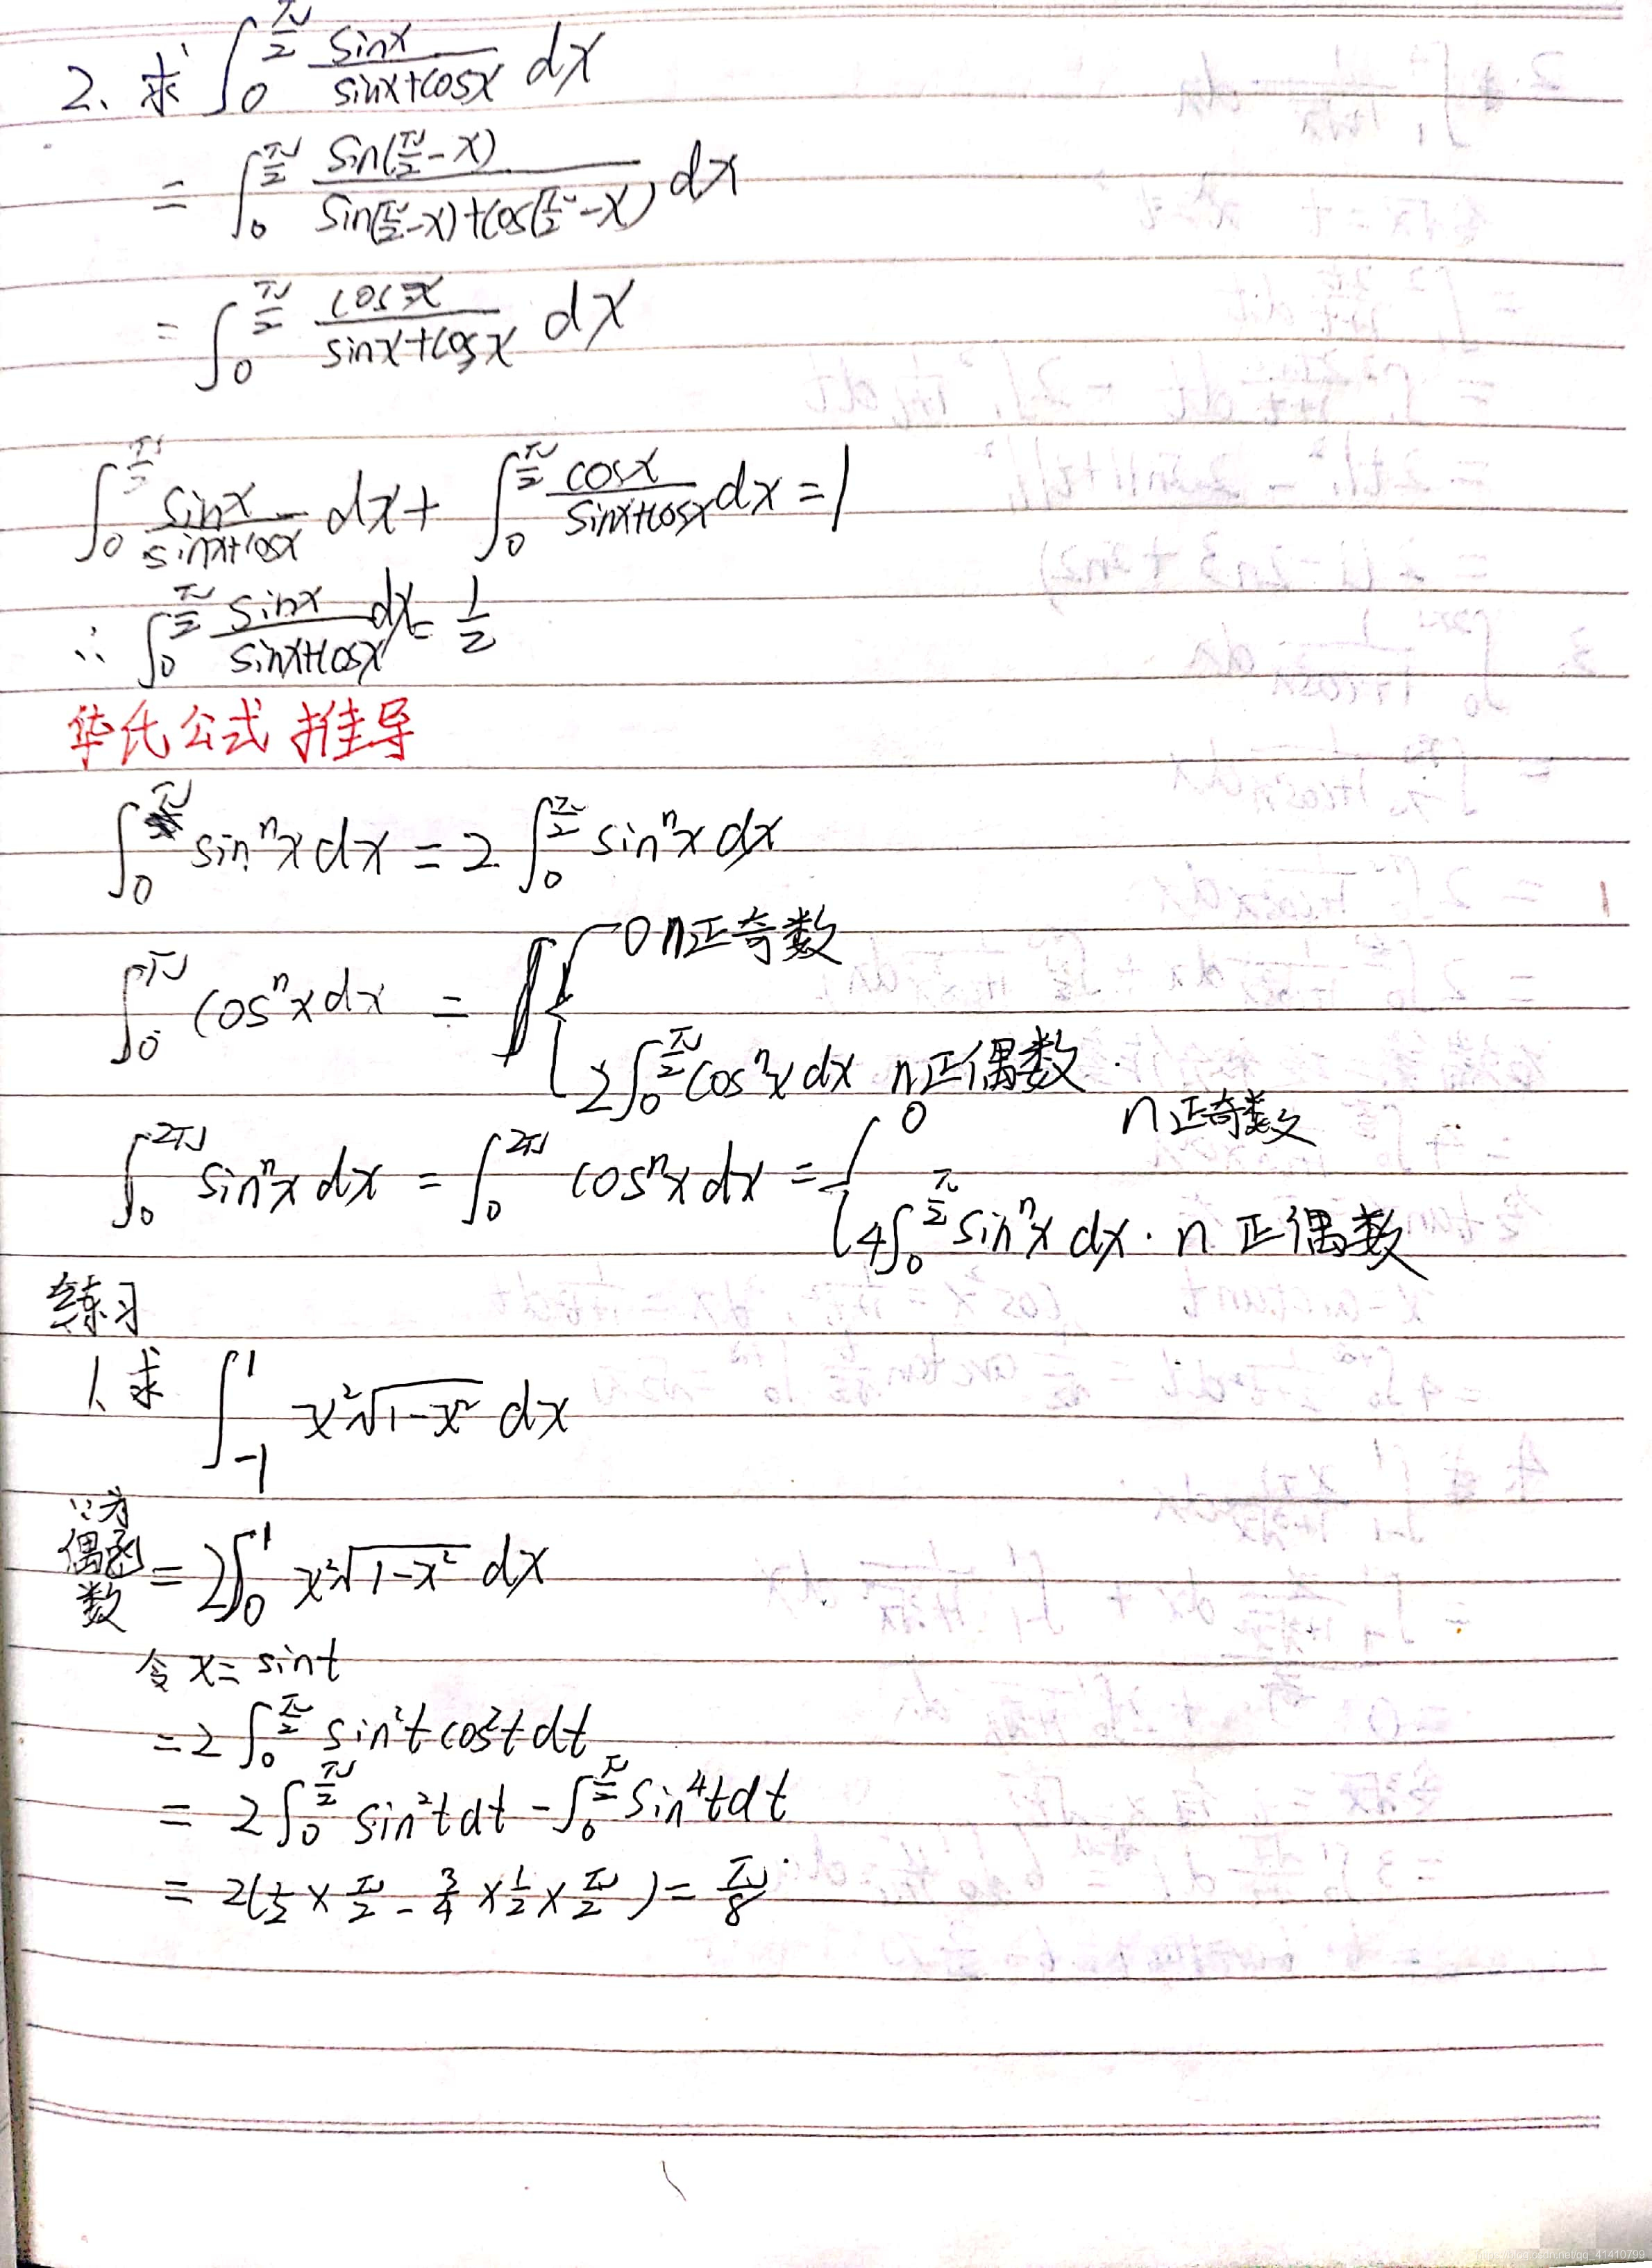 2、求 ∫₀^{π/2} sinx/(sinx+cosx) dx
= ∫₀^{π/2} sin(π/2-x)/(sin(π/2-x)+cos(π/2-x)) dx
= ∫₀^{π/2} cosx/(sinx+cosx) dx
∫₀^{π/2} sinx/(sinx+cosx) dx + ∫₀^{π/2} cosx/(sinx+cosx) dx = 1
∴ ∫₀^{π/2} sinx/(sinx+cosx) dx = 1/2
华氏公式推导
∫₀^π sinⁿx dx = 2 ∫₀^{π/2} sinⁿx dx
∫₀^π cosⁿx dx = { 0 n正奇数
2∫₀^{π/2} cosⁿx dx n正偶数
∫₀^{2π} sinⁿx dx = ∫₀^{2π} cosⁿx dx = { 0 n正奇数
4∫₀^{π/2} sinⁿx dx · n 正偶数
练习
1、求 ∫₋₁^1 x²√(1-x²) dx
∵为偶函数 = 2∫₀^1 x²√(1-x²) dx
令 x = sint
= 2 ∫₀^{π/2} sin²t cos²t dt
= 2 ∫₀^{π/2} sin²t dt - ∫₀^{π/2} sin⁴t dt
= 2(1/2 × π/2 - 3/4 × 1/2 × π/2) = π/8
https://blog.csdn.net/qq_41410799